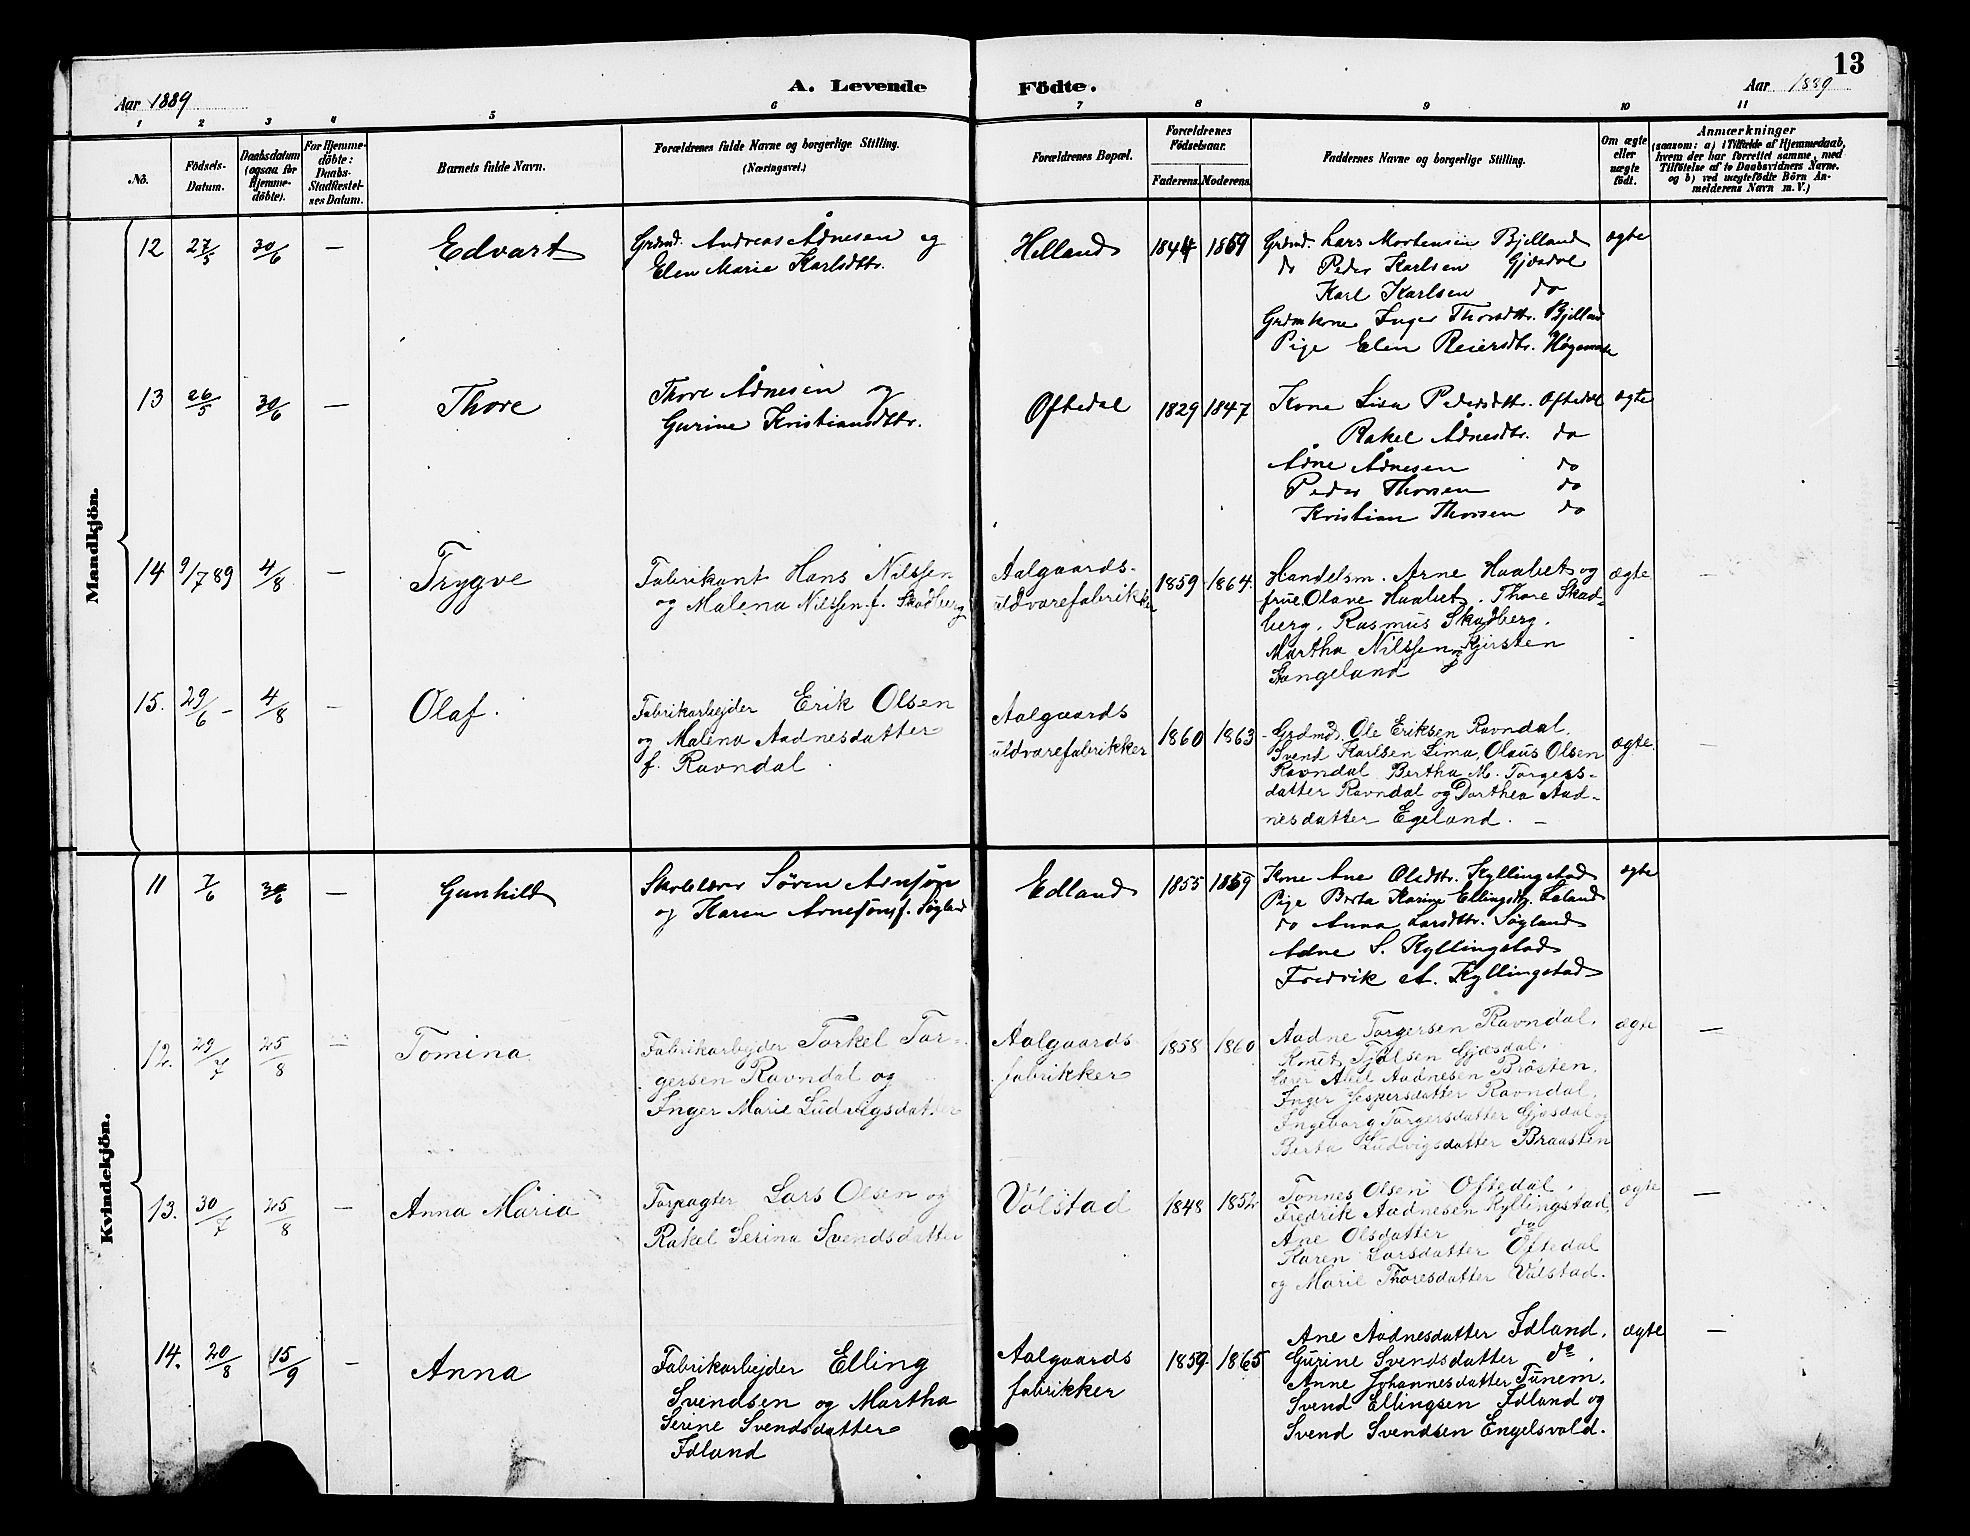 13
Aar 1889
A. Levende Födte.
Aar 1889
1 2 3 4 5 6 7 8 9 10 11
No.
Födsels-
Datum.
Daabsdatum
(ogsaa for
Hjemme-
döbte).
For Hjemme-
döbte:
Daabs-
Stadfæstel-
ses Datum.
Barnets fulde Navn.
Forældrenes fulde Navne og borgerlige Stilling.
(Næringsvei.)
Forældrenes Bopæl.
Forældrenes
Födselsaar.
Faderens. Moderens.
Faddernes Navne og borgerlige Stilling.
Om ægte
eller
uægte
födt.
Anmærkninger
(saasom: a) i Tilfælde af Hjemmedaab,
hvem der har forrettet samme, med
Tilföielse af to Daabsvidners Navne.
og b) ved uægtefödte Börn An-
melderens Navn m.V.)
Mandkjön.
12 27/5 30/6 — Edvart
Grdmd. Andreas Ådnesen og
Elen Marie Karlsdttr.
Helland 1844 1859
Grdmd. Lars Mortensen Bjelland
do Peder Karlsen Gjesdal
Karl Karlsen do
Grdmkone Inger Thorsdttr. Bjelland
Pige Elen Reiersdtr.
ægte
13 26/5 30/6 — Thore
Thore Ådnesen og
Gurine Kristiansdttr.
Oftedal 1829 1847
Kone Lisa Pedersdttr. Oftedal
Rakel Ådnesdtr. do
Ådne Ådnesen do
Peder Thorsen do
Kristian Thorsen do
ægte
14 9/7 89 4/8 — Trygve
Fabrikant Hans Nilssen
og Malena Nilssen f. Skadberg
Aalgaards-
uldvarefabrikker
1859 1864.
Handelsm. Arne Haabet og
frue Olave Haabet. Thore Skad-
berg, Rasmus Skadberg,
Martha Nilssen, Kjirsten
Stangeland
ægte —
15. 29/6 – 4/8 — Olaf.
Fabrikarbejder Erik Olsen
og Malena Aadnesdatter
f. Ravndal.
Aalgaards
uldvarefabrikker
1860 1863
Grdmd. Ole Eriksen Ravndal,
Svend Karlsen Lima, Olaus Olsen
Ravndal Bertha M. Torgers-
datter Ravndal og Dorthea Aad-
nesdatter Egeland. —
ægte. —
Kvindekjön.
11 7/6 30/6 — Gunhild
Skolelærer Sören Arnesön
og Karen Arnesön f. Söyland
Edland 1855 1859
Kone Ane Olsdttr. Kyllingstad
Pige Berta Karine Ellingsdtr. Laland
do Anna Larsdttr. Söyland
Adne S. Kyllingstad
Fredrik A. Kyllingstad
ægte
12. 29/7 25/8 — Tomina
Fabrikarbejder Torkel Tor-
gersen Ravndal og
Inger Marie Ludvigsdatter
Aalgaards-
fabrikker
1858 1860
Aadne Torgersen Ravndal,
Knut Gjesdal,
Lærer Abel Aadnesen Bråsten,
Inger Jespersdatter Ravndal,
Ingeborg Torgersdatter Gjesdal og
Berta Ludvigsdatter Braasten
ægte —
13. 30/7 25/8 — Anna Maria
Forpagter Lars Olsen og
Rakel Serina Svendsdatter
Vølstad 1848 1852
Tønnes Olsen Oftedal,
Fredrik Aadnesen Kyllingstad,
Ane Olsdatter do
Karen Larsdatter Oftedal
og Marie Thoresdatter Vølstad.
ægte —
14. 20/8 15/9 — Anna
Fabrikarbejder Elling
Svendsen og Martha
Serine Svendsdatter
Idland
Aalgaards
fabrikker
1859 1865
Ane Aadnesdatter Idland,
Gurine Svendsdatter do,
Anne Johannesdatter Tunem,
Svend Ellingsen Idland og
Svend Svendsen Engelsvold.
ægte —